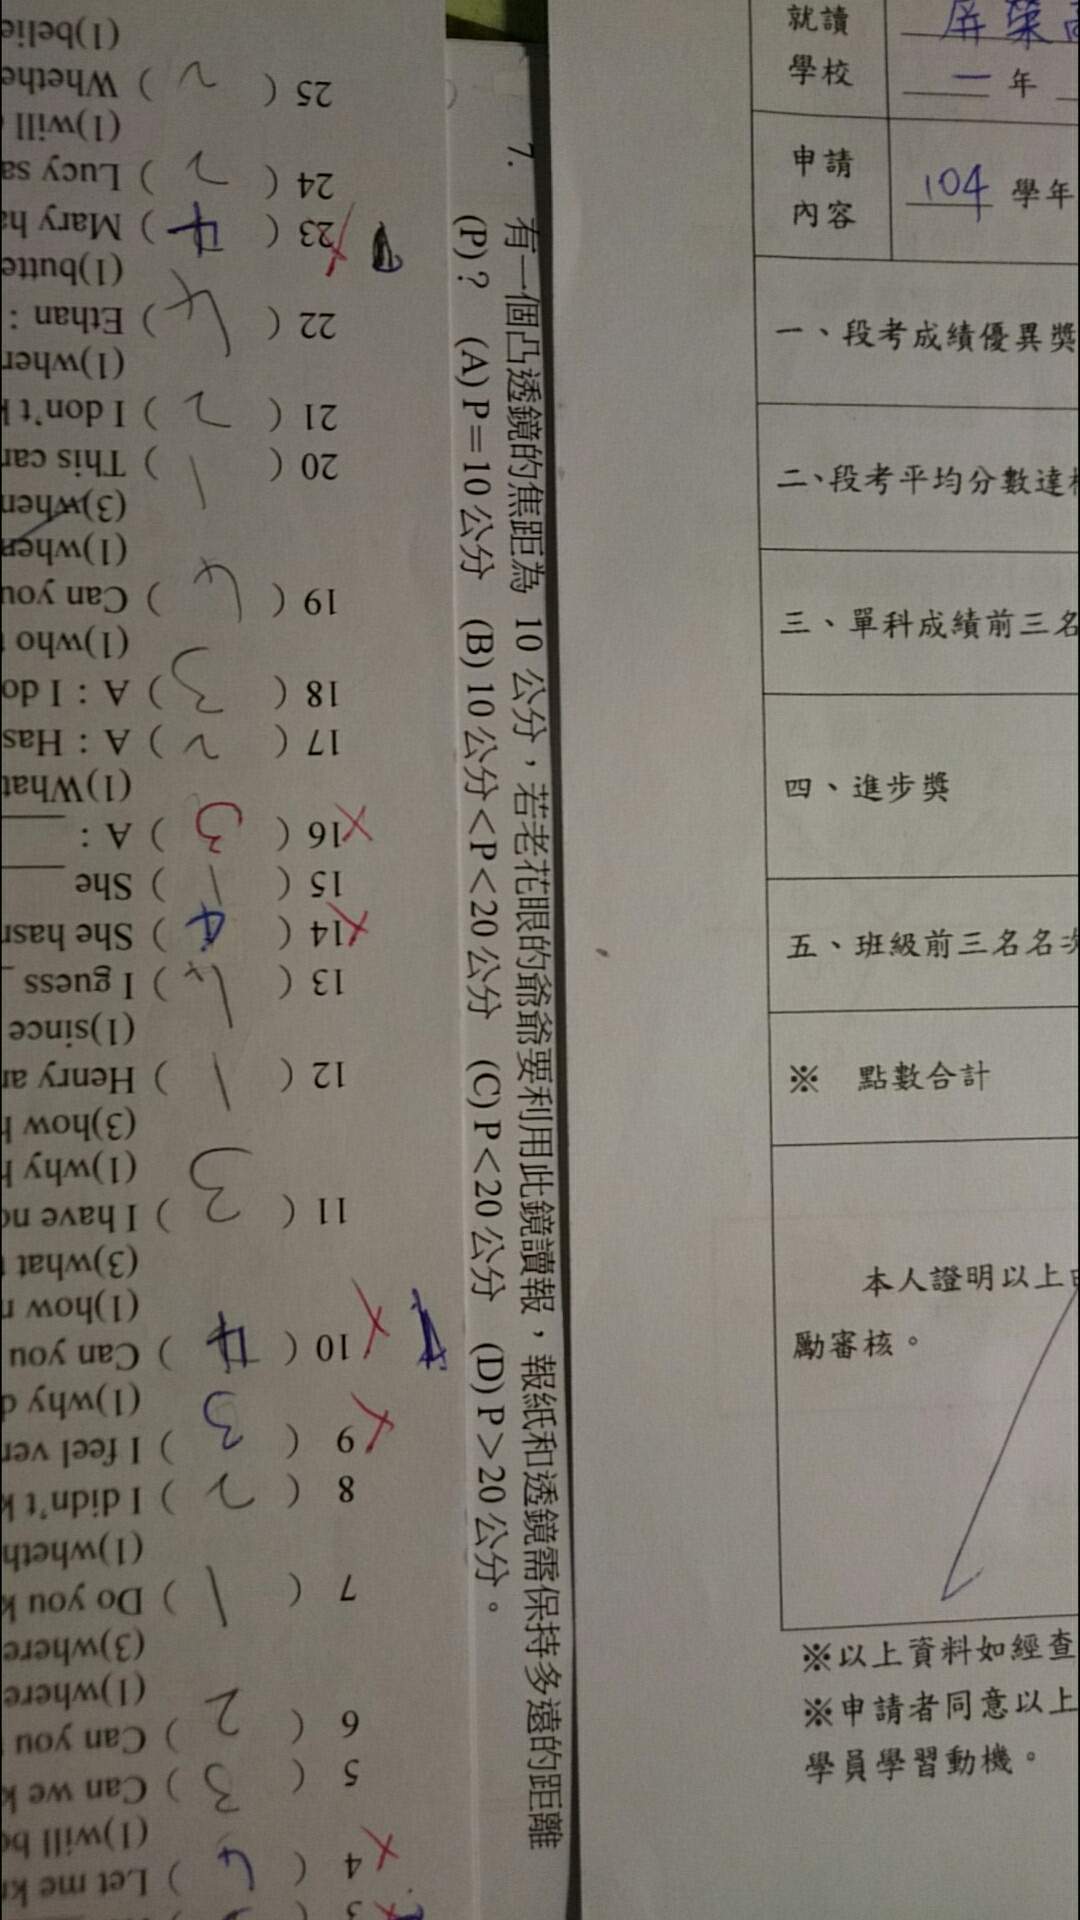 7. 有一個凸透鏡的焦距為 10 公分，若老花眼的爺爺要利用此鏡讀報，報紙和透鏡需保持多遠的距離
(P)？ (A) P＝10 公分 (B) 10 公分＜P＜20 公分 (C) P＜20 公分 (D) P＞20 公分。
就讀
學校
屏榮高
一 年
申請
內容
104 學年
一、段考成績優異獎
二、段考平均分數達
三、單科成績前三名
四、進步獎
五、班級前三名名次
※ 點數合計
本人證明以上
勵審核。
※以上資料如經查
※申請者同意以上
學員學習動機。
3
4 ( 4 ) Let me
(1)will
5 ( 3 ) Can we
6 ( 2 ) Can you
(1)where
(3)where
7 ( 1 ) Do you
(1)wheth
8 ( 2 ) I didn't
9 ( 3 ) I feel ver
(1)why
10 ( 4 ) Can you
(1)how
(3)what
11 ( 3 ) I have
(1)why
(3)how
12 ( 1 ) Henry
(1)since
13 ( 4 ) I guess
14 ( 4 ) She hasn
15 ( 1 ) She
16 ( 3 ) A：
(1)What
17 ( 2 ) A：Has
18 ( 3 ) A：I do
(1)who
19 ( 4 ) Can you
(1)when
(3)when
20 ( 1 ) This
21 ( 2 ) I don't
(1)wher
22 ( 4 ) Ethan：
(1)butte
23 ( 4 ) Mary
24 ( 2 ) Lucy
(1)will
25 ( 2 ) Whethe
(1)belie